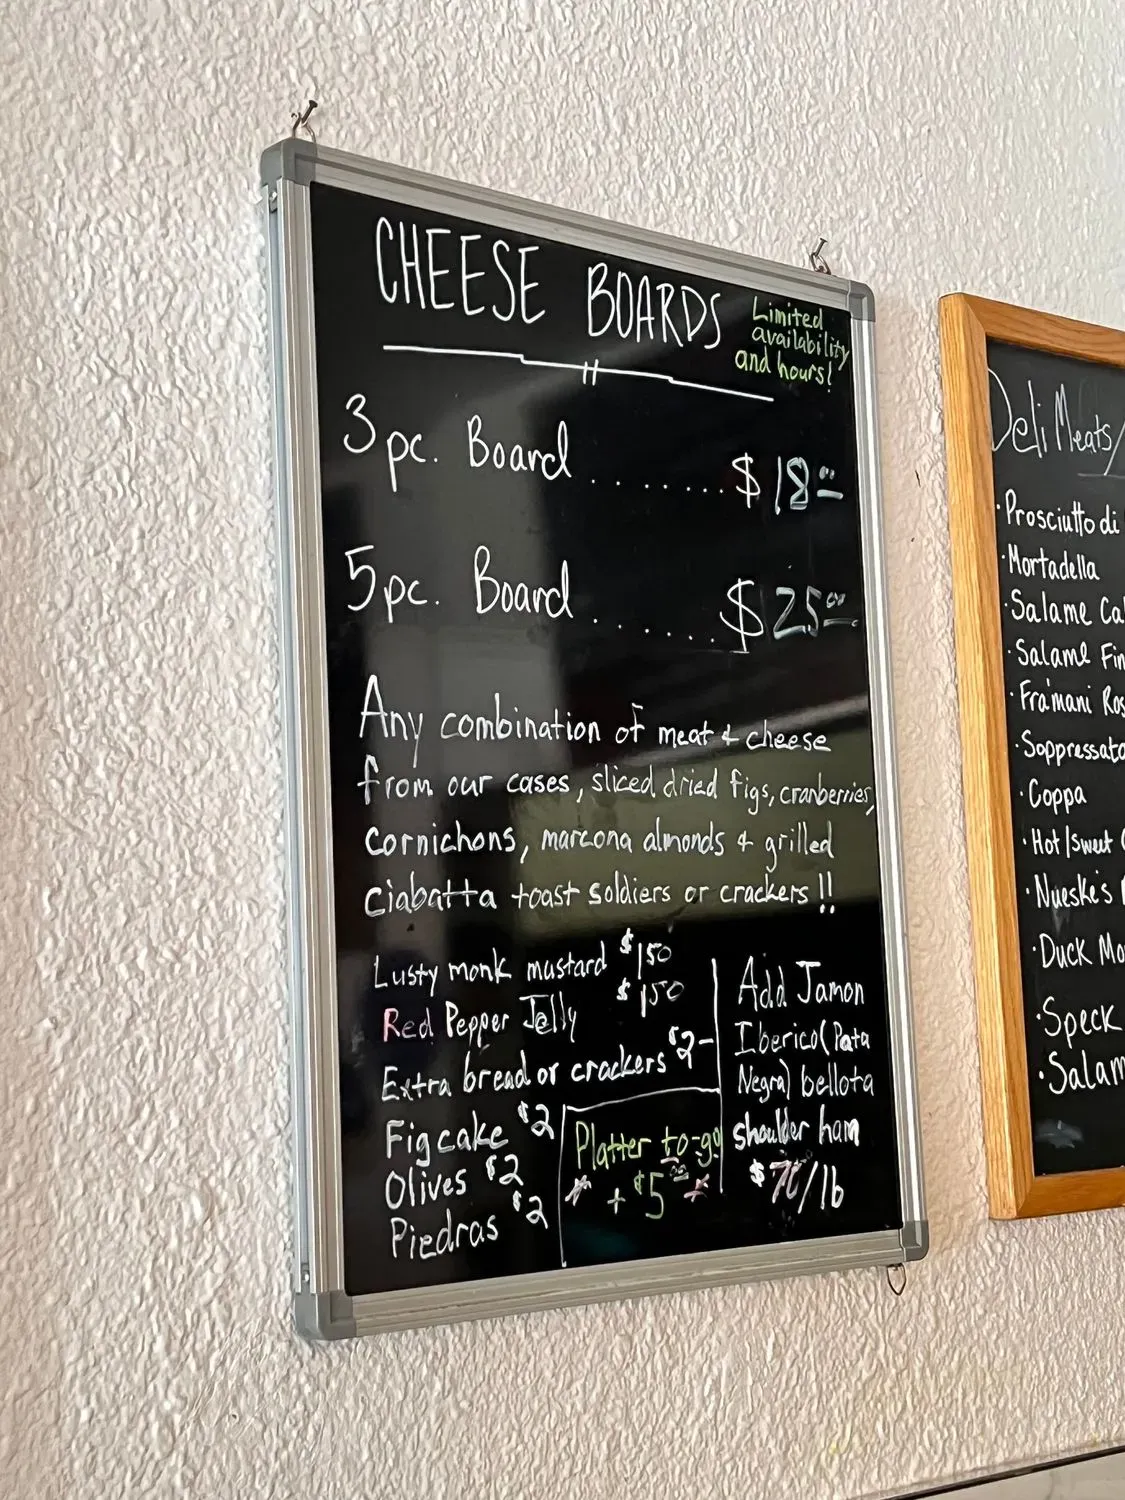 CHEESE BOARDS
Limited
availability
and hours!
3 pc. Board ........ $18.00
5 pc. Board ....... $25.00
Any combination of meat & cheese
from our cases, sliced dried figs, cranberries,
cornichons, marcona almonds & grilled
ciabatta toast soldiers or crackers!!
Lusty monk mustard $1.50
Red Pepper Jelly $1.50
Extra bread or crackers $2-
Fig cake $2
Olives $2
Piedras $2
Platter to-go
* + $5.00 *
Add Jamon
Iberico (Pata
Negra) bellota
shoulder ham
/lb
Deli Meats/
·Prosciutto di
·Mortadella
·Salame
·Salame
·Fra'mani
·Soppressata
·Coppa
·Hot/Sweet
·Nueske's
·Duck
·Speck